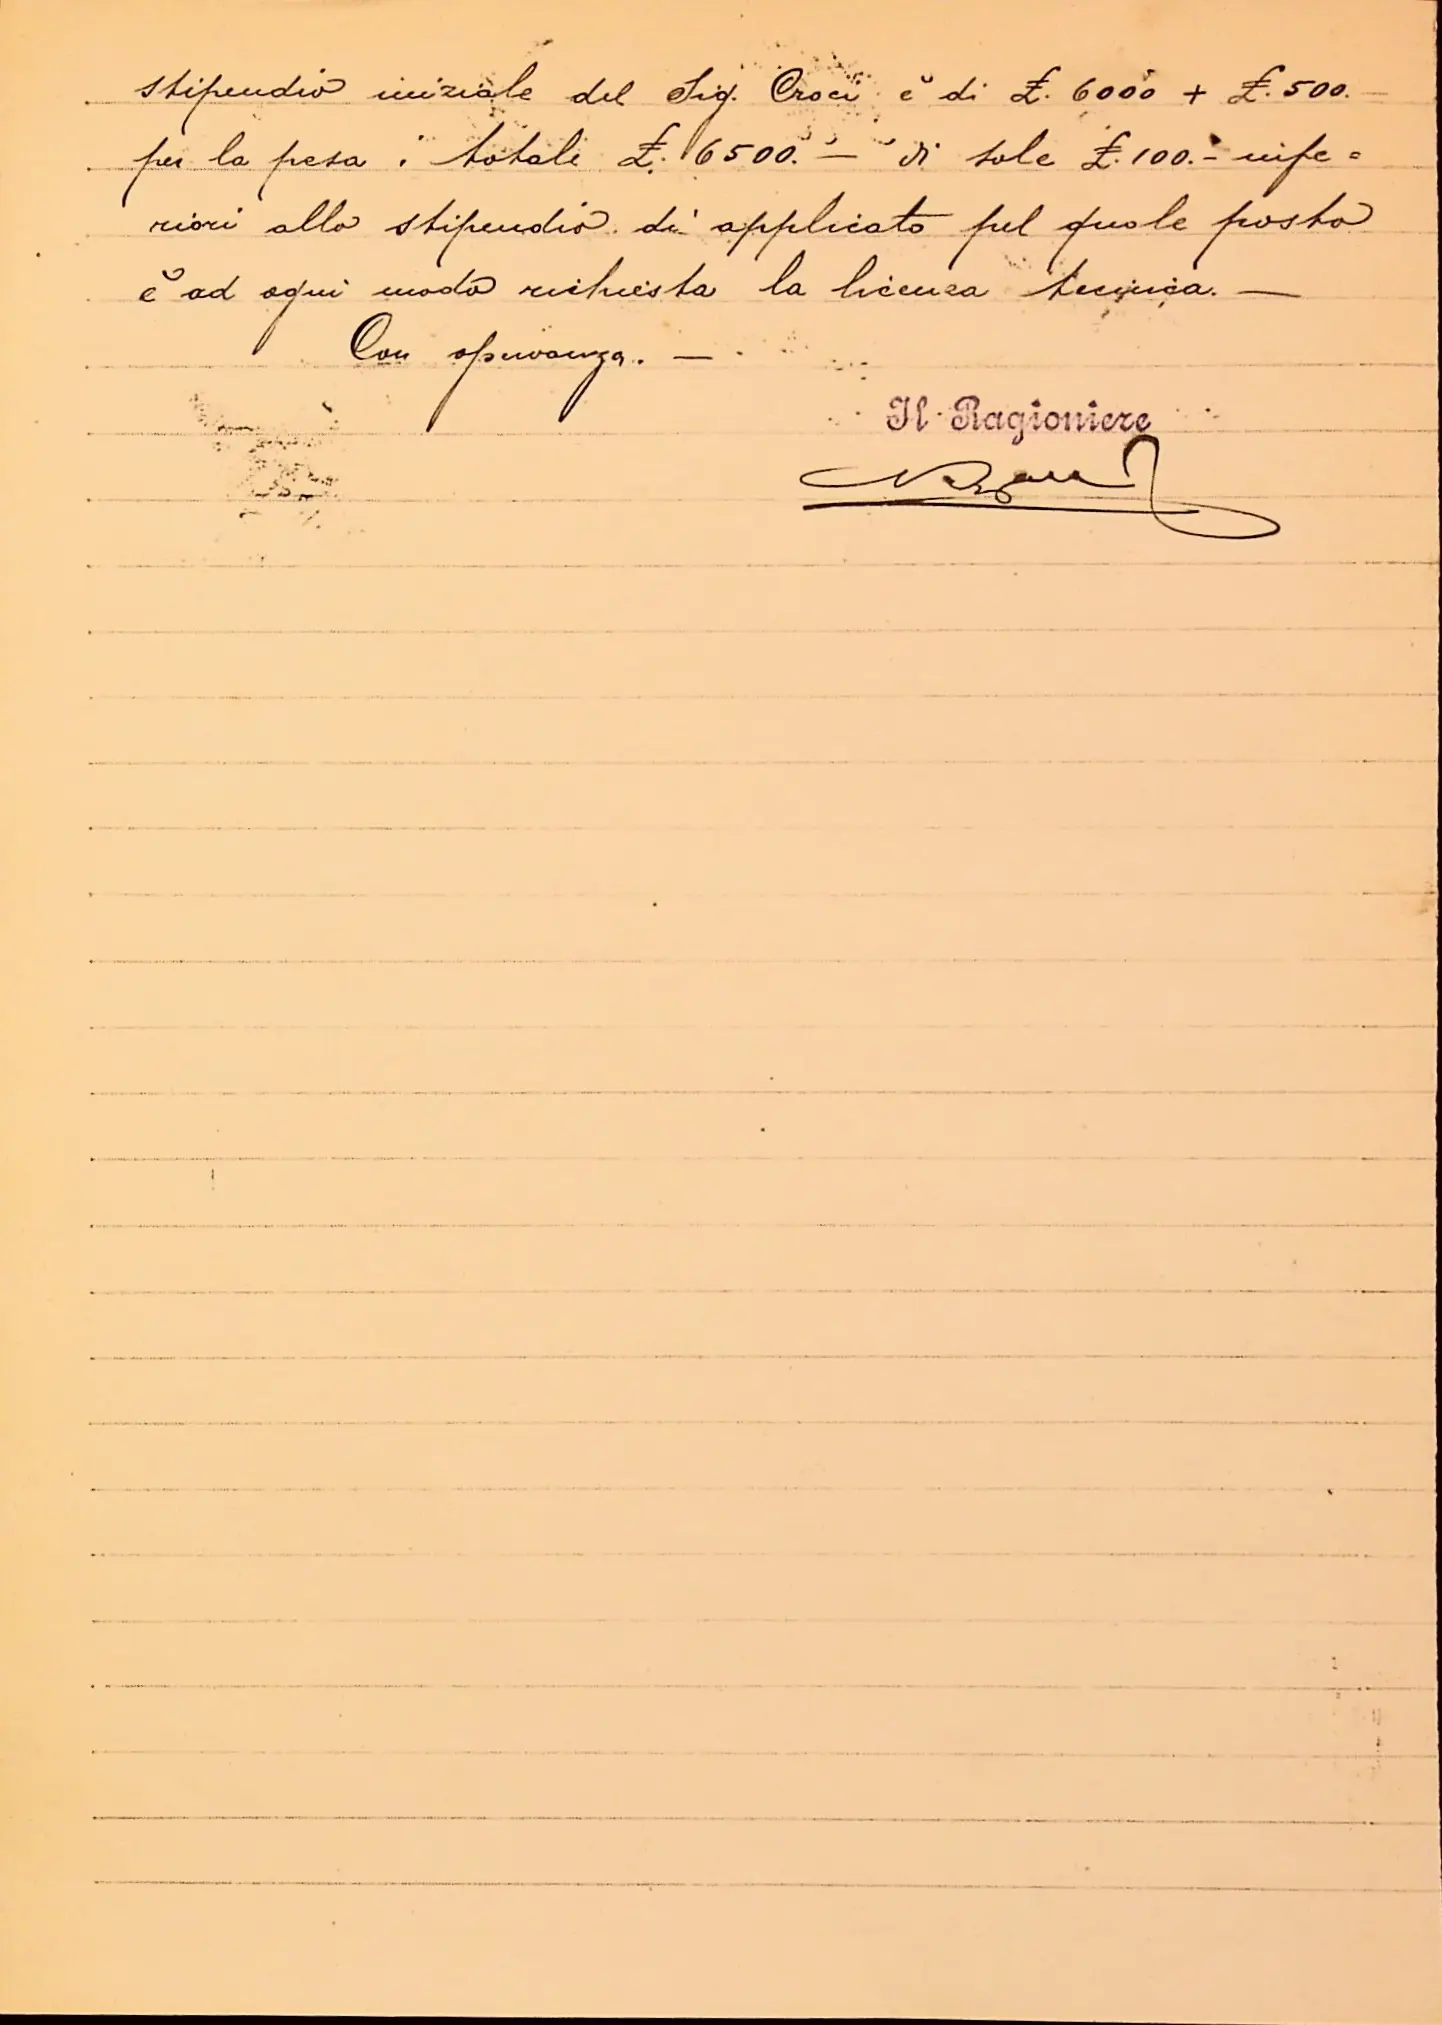 stipendio iniziale del Sig. Croci è di £. 6000 + £. 500.
per la pesa: totale £. 6500. — di sole £. 100. - infe =
riori allo stipendio di applicato pel quale posto
è ad ogni modo richiesta la licenza tecnica. —
Con osservanza. —
Il Ragioniere